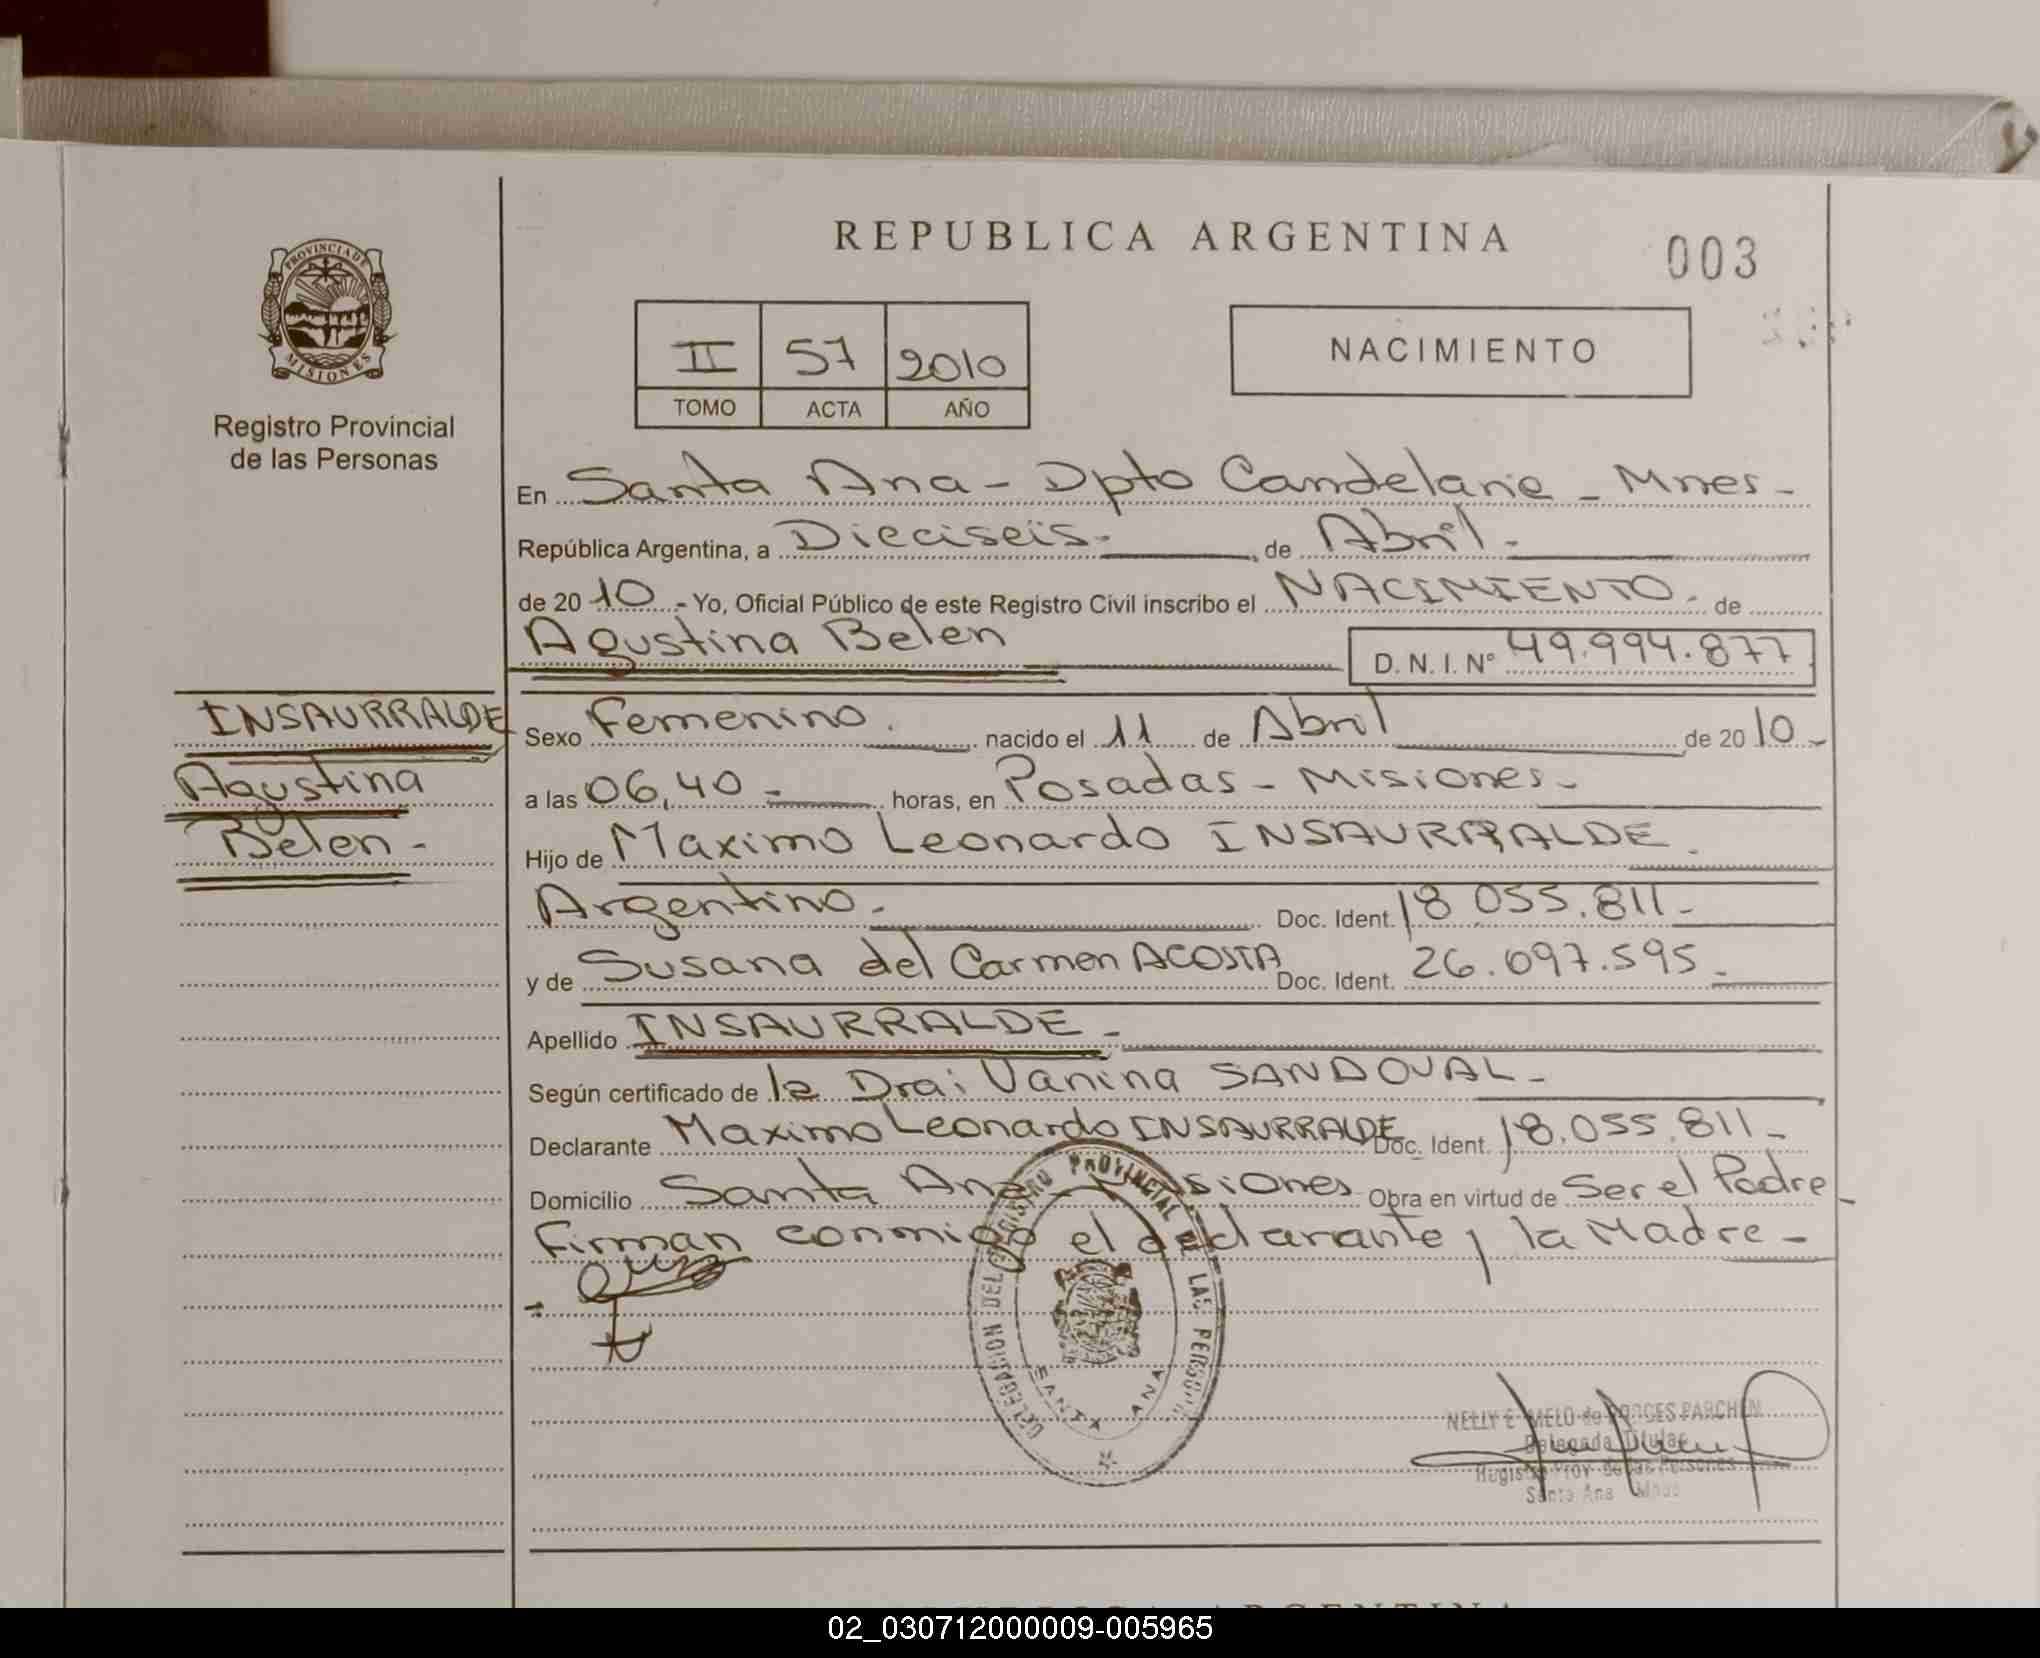 PROVINCIA DE
MISIONES
Registro Provincial
de las Personas
REPUBLICA ARGENTINA
003
II 57 2010
TOMO ACTA AÑO
NACIMIENTO
En Santa Ana - Dpto Candelaria - Mnes -
República Argentina, a Dieciseis. de Abril -
de 2010 - Yo, Oficial Público de este Registro Civil inscribo el NACIMIENTO. de
Agustina Belen
D. N. I. N° 49.994.877
INSAURRALDE
Agustina
Belen -
Sexo Femenino. nacido el 11 de Abril de 2010 -
a las 06,40 - horas, en Posadas - Misiones -
Hijo de Maximo Leonardo INSAURRALDE.
Argentino. Doc. Ident. 18.055.811 -
y de Susana del Carmen ACOSTA Doc. Ident. 26.097.595 -
Apellido INSAURRALDE -
Según certificado de la Dra: Vanina SANDOVAL -
Declarante Maximo Leonardo INSAURRALDE Doc. Ident. 18.055.811 -
Domicilio Santa Ana - Misiones Obra en virtud de Ser el Padre -
Firman conmigo el declarante y la Madre -
DELEGACION DEL REGISTRO PROVINCIAL DE LAS PERSONAS
SANTA ANA
NELLY E. MELO de BORGES PARCHEN
Delegada Titular
Registro Prov. de las Personas
Santa Ana Mnes
REPUBLICA ARGENTINA
02_030712000009-005965